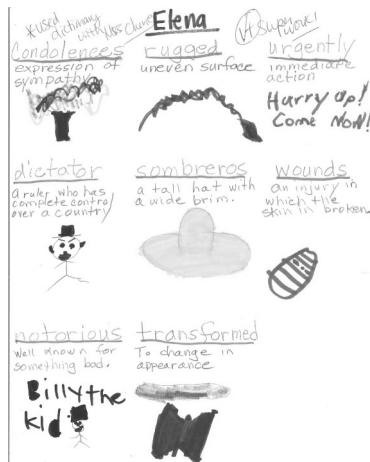 *used dictionary with Miss
Elena
Super work!
Condolences
expression of
sympathy
rugged
uneven surface
urgently
immediate
action
Hurry up!
Come Now!
dictator
a ruler who has
complete control
over a country
sombreros
a tall hat with
a wide brim.
wounds
an injury in
which the
skin in broken.
notorious
Well known for
something bad.
Billy the
kid
transformed
To change in
appearance